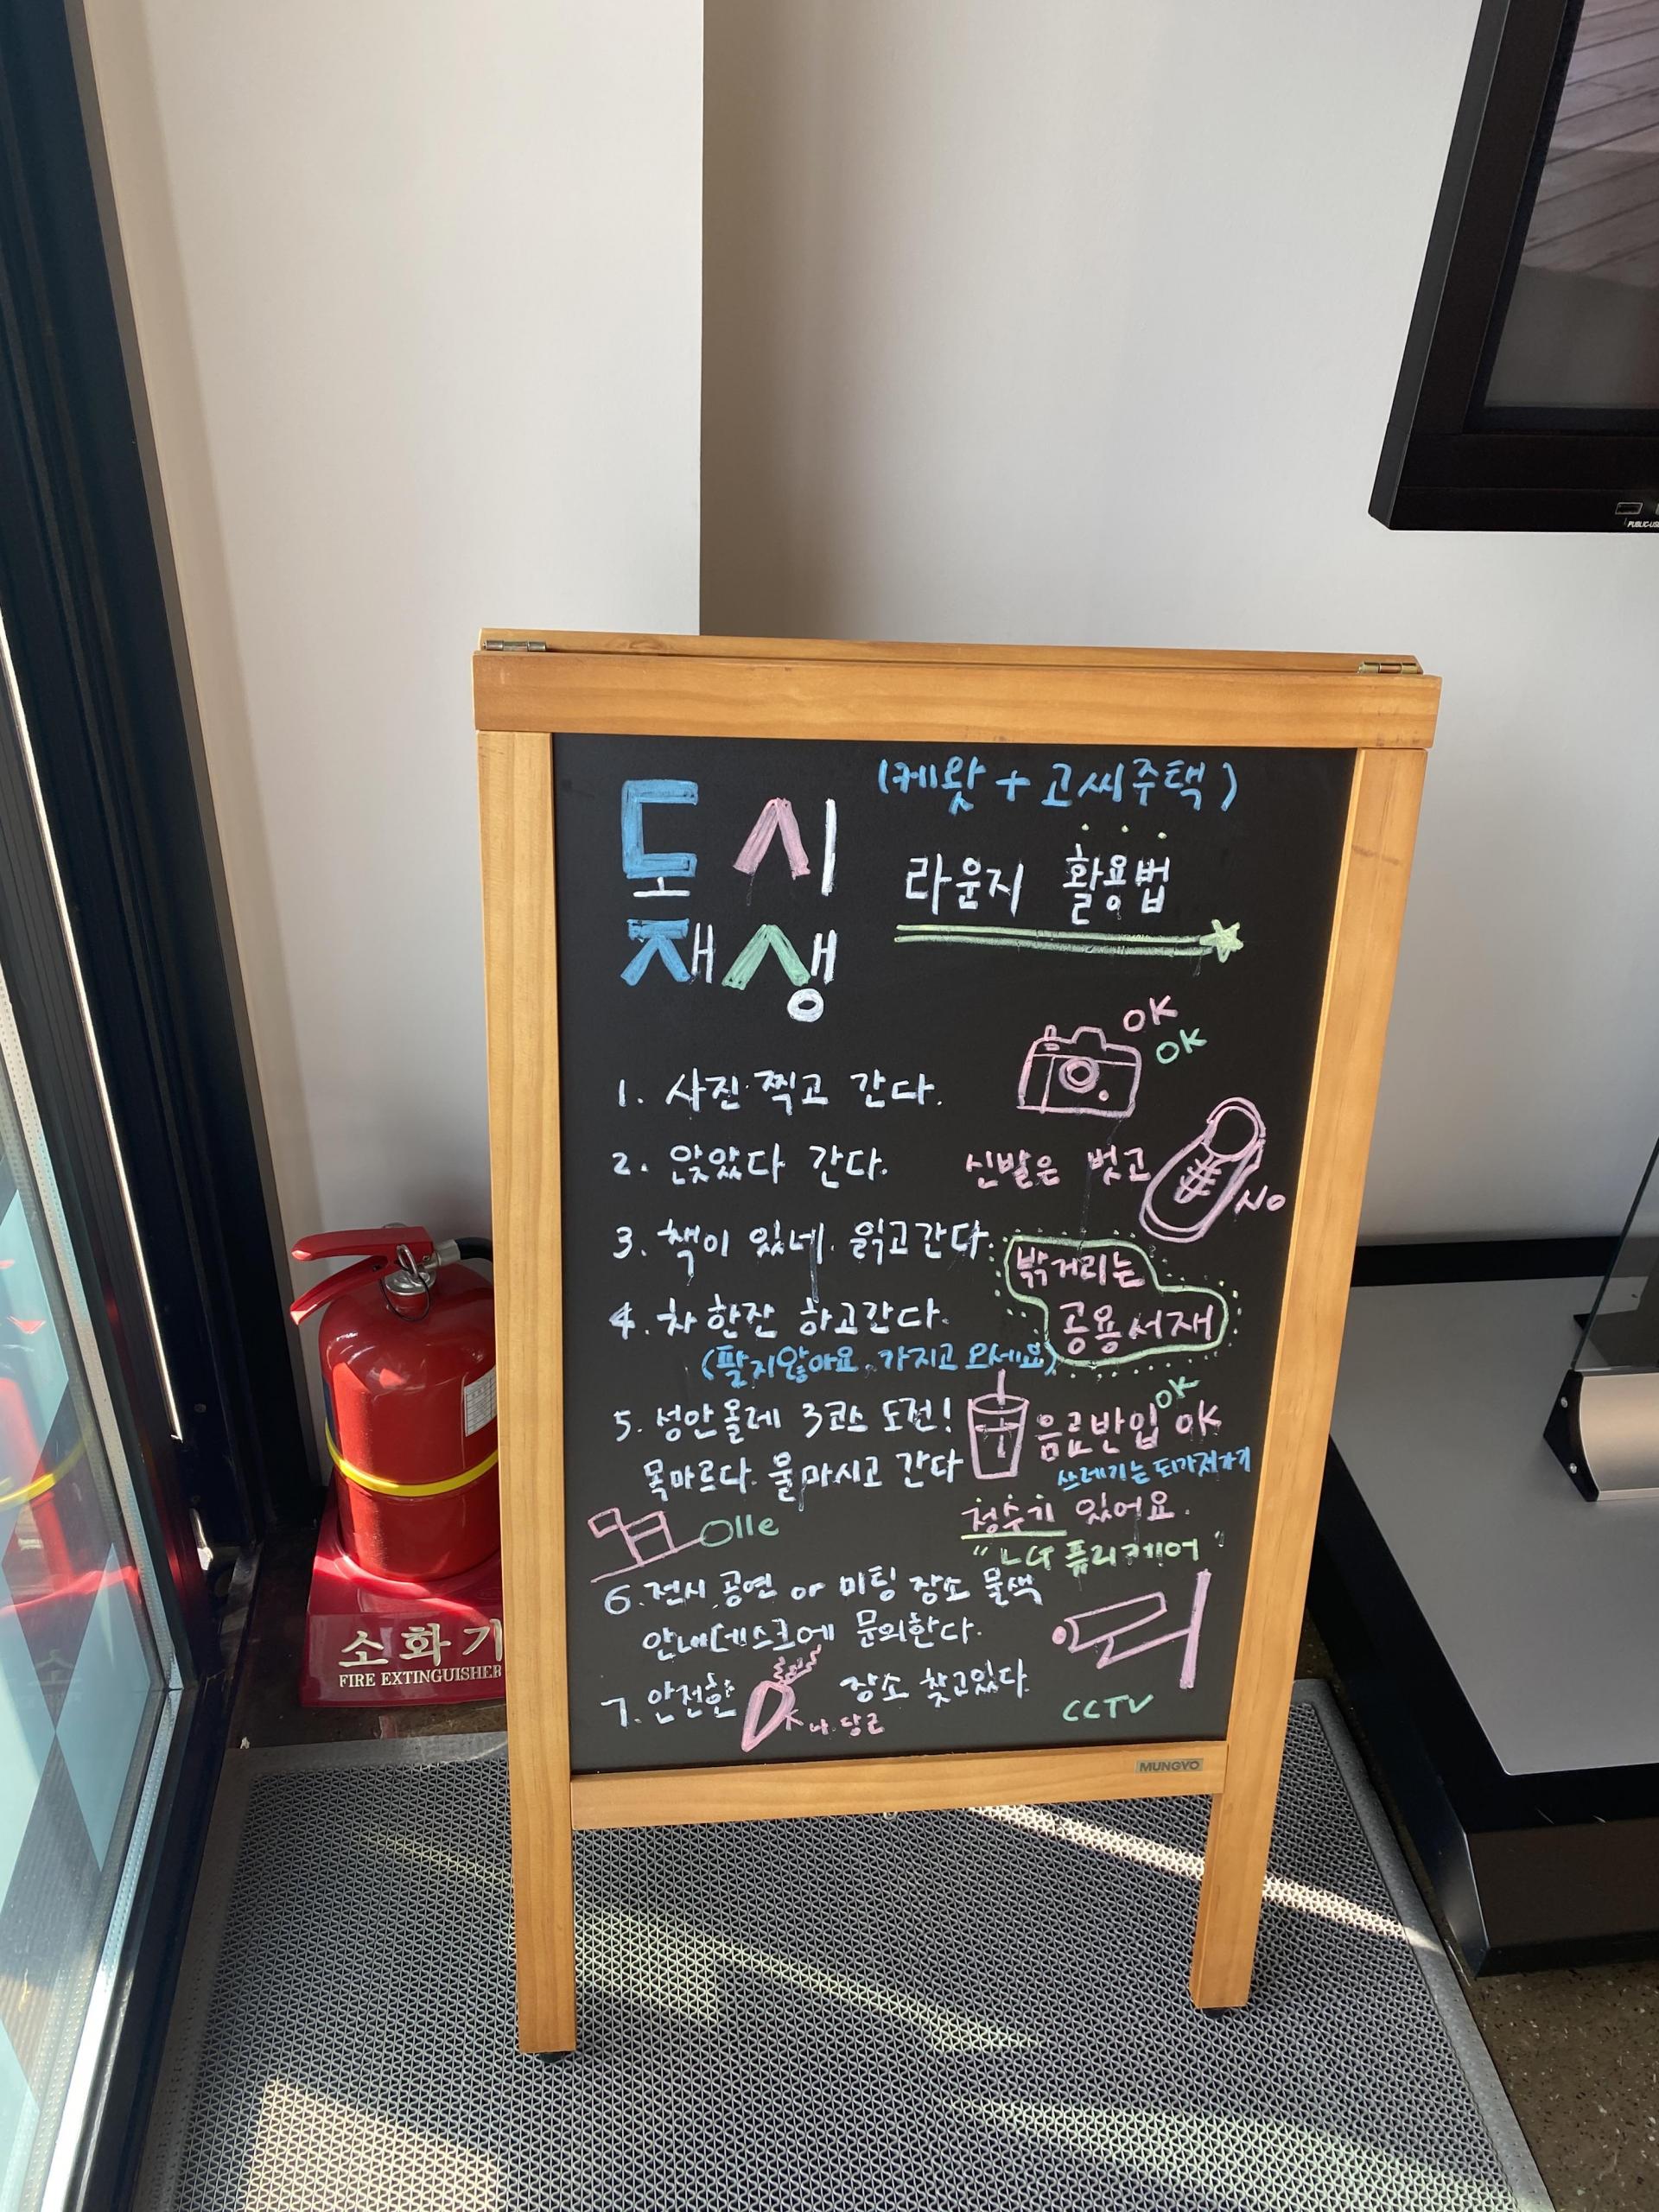 (케왓 + 고씨주택)
도시
재생
라운지 활용법
OK
OK
1. 사진 찍고 간다.
2. 앉았다 간다.
신발은 벗고
NO
3. 책이 있네. 읽고간다.
밖거리는
공용서재
4. 차 한잔 하고간다.
(팔지않아요. 가지고 오세요)
5. 성안올레 3코스 도전!
목마르다. 물마시고 간다
OK
음료반입 OK
쓰레기는 되가져가기
정수기 있어요.
"LG 퓨리케어"
Olle
6. 전시, 공연 or 미팅 장소 물색
안내데스크에 문의한다.
7. 안전한
나. 당근
장소 찾고있다.
CCTV
MUNGYO
소화기
FIRE EXTINGUISHER